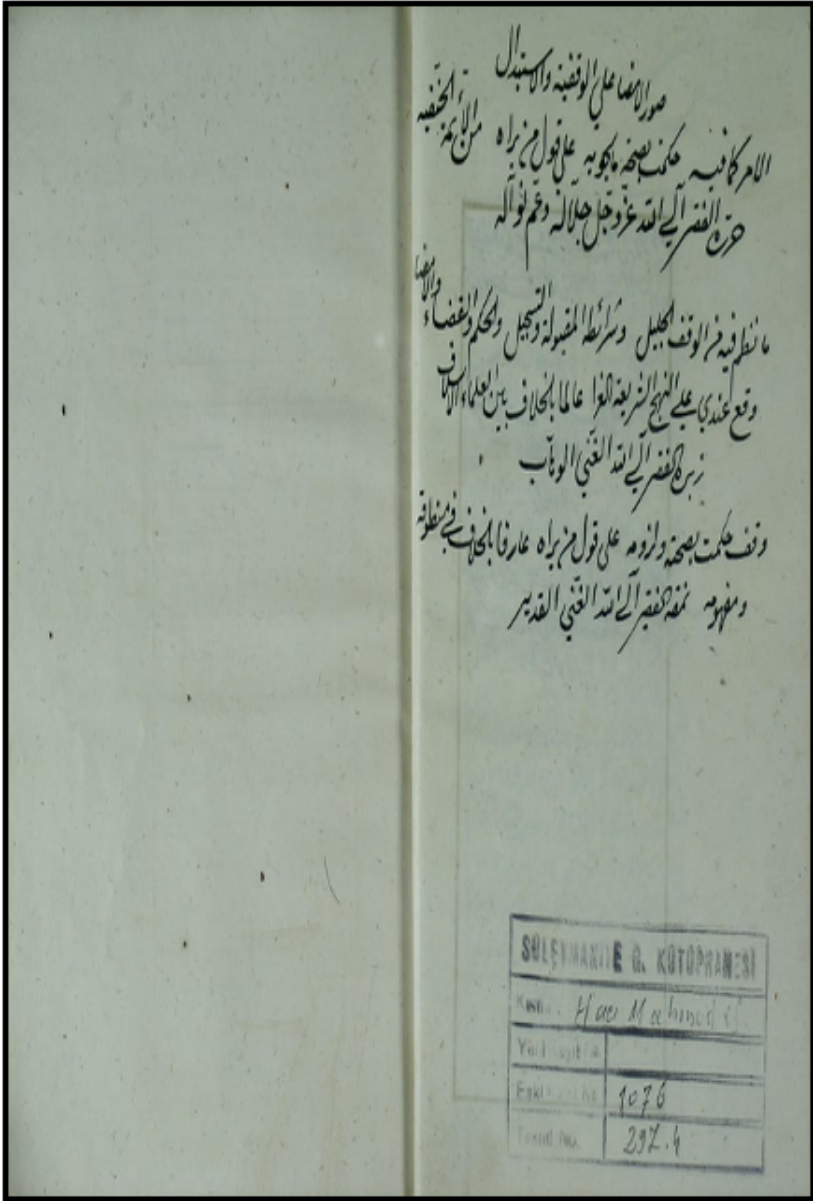 صور الامضا علي الوقفية والاستبدال
الامر كما فيه حكمت بصحته ما يحويه علي قول من يراه من الأئمة الحنفيه
حرره الفقير الي الله عز وجل جلاله وعم نواله
ما نظم فيه من الوقف الجليل وشرائطه المقبولة والتسجيل والحكم والقضاء والامضا
وقع عندي علي النهج الشريعة الغرا عالما بالخلاف بين العلماء الاسلاف
زبره الفقير الي الله الغني الوهاب
وقف حكمت بصحته ولزومه علي قول من يراه عارفا بالخلاف في منطوقه
ومفهومه نمقه الفقير الي الله الغني القدير
SÜLEYMANİYE G. KÜTÜPHANESİ
Kısmı Hacı Mahmud Ef.
Yeni Kayıt No.
Eski Kayıt No. 1076
Tasnif No. 297.4